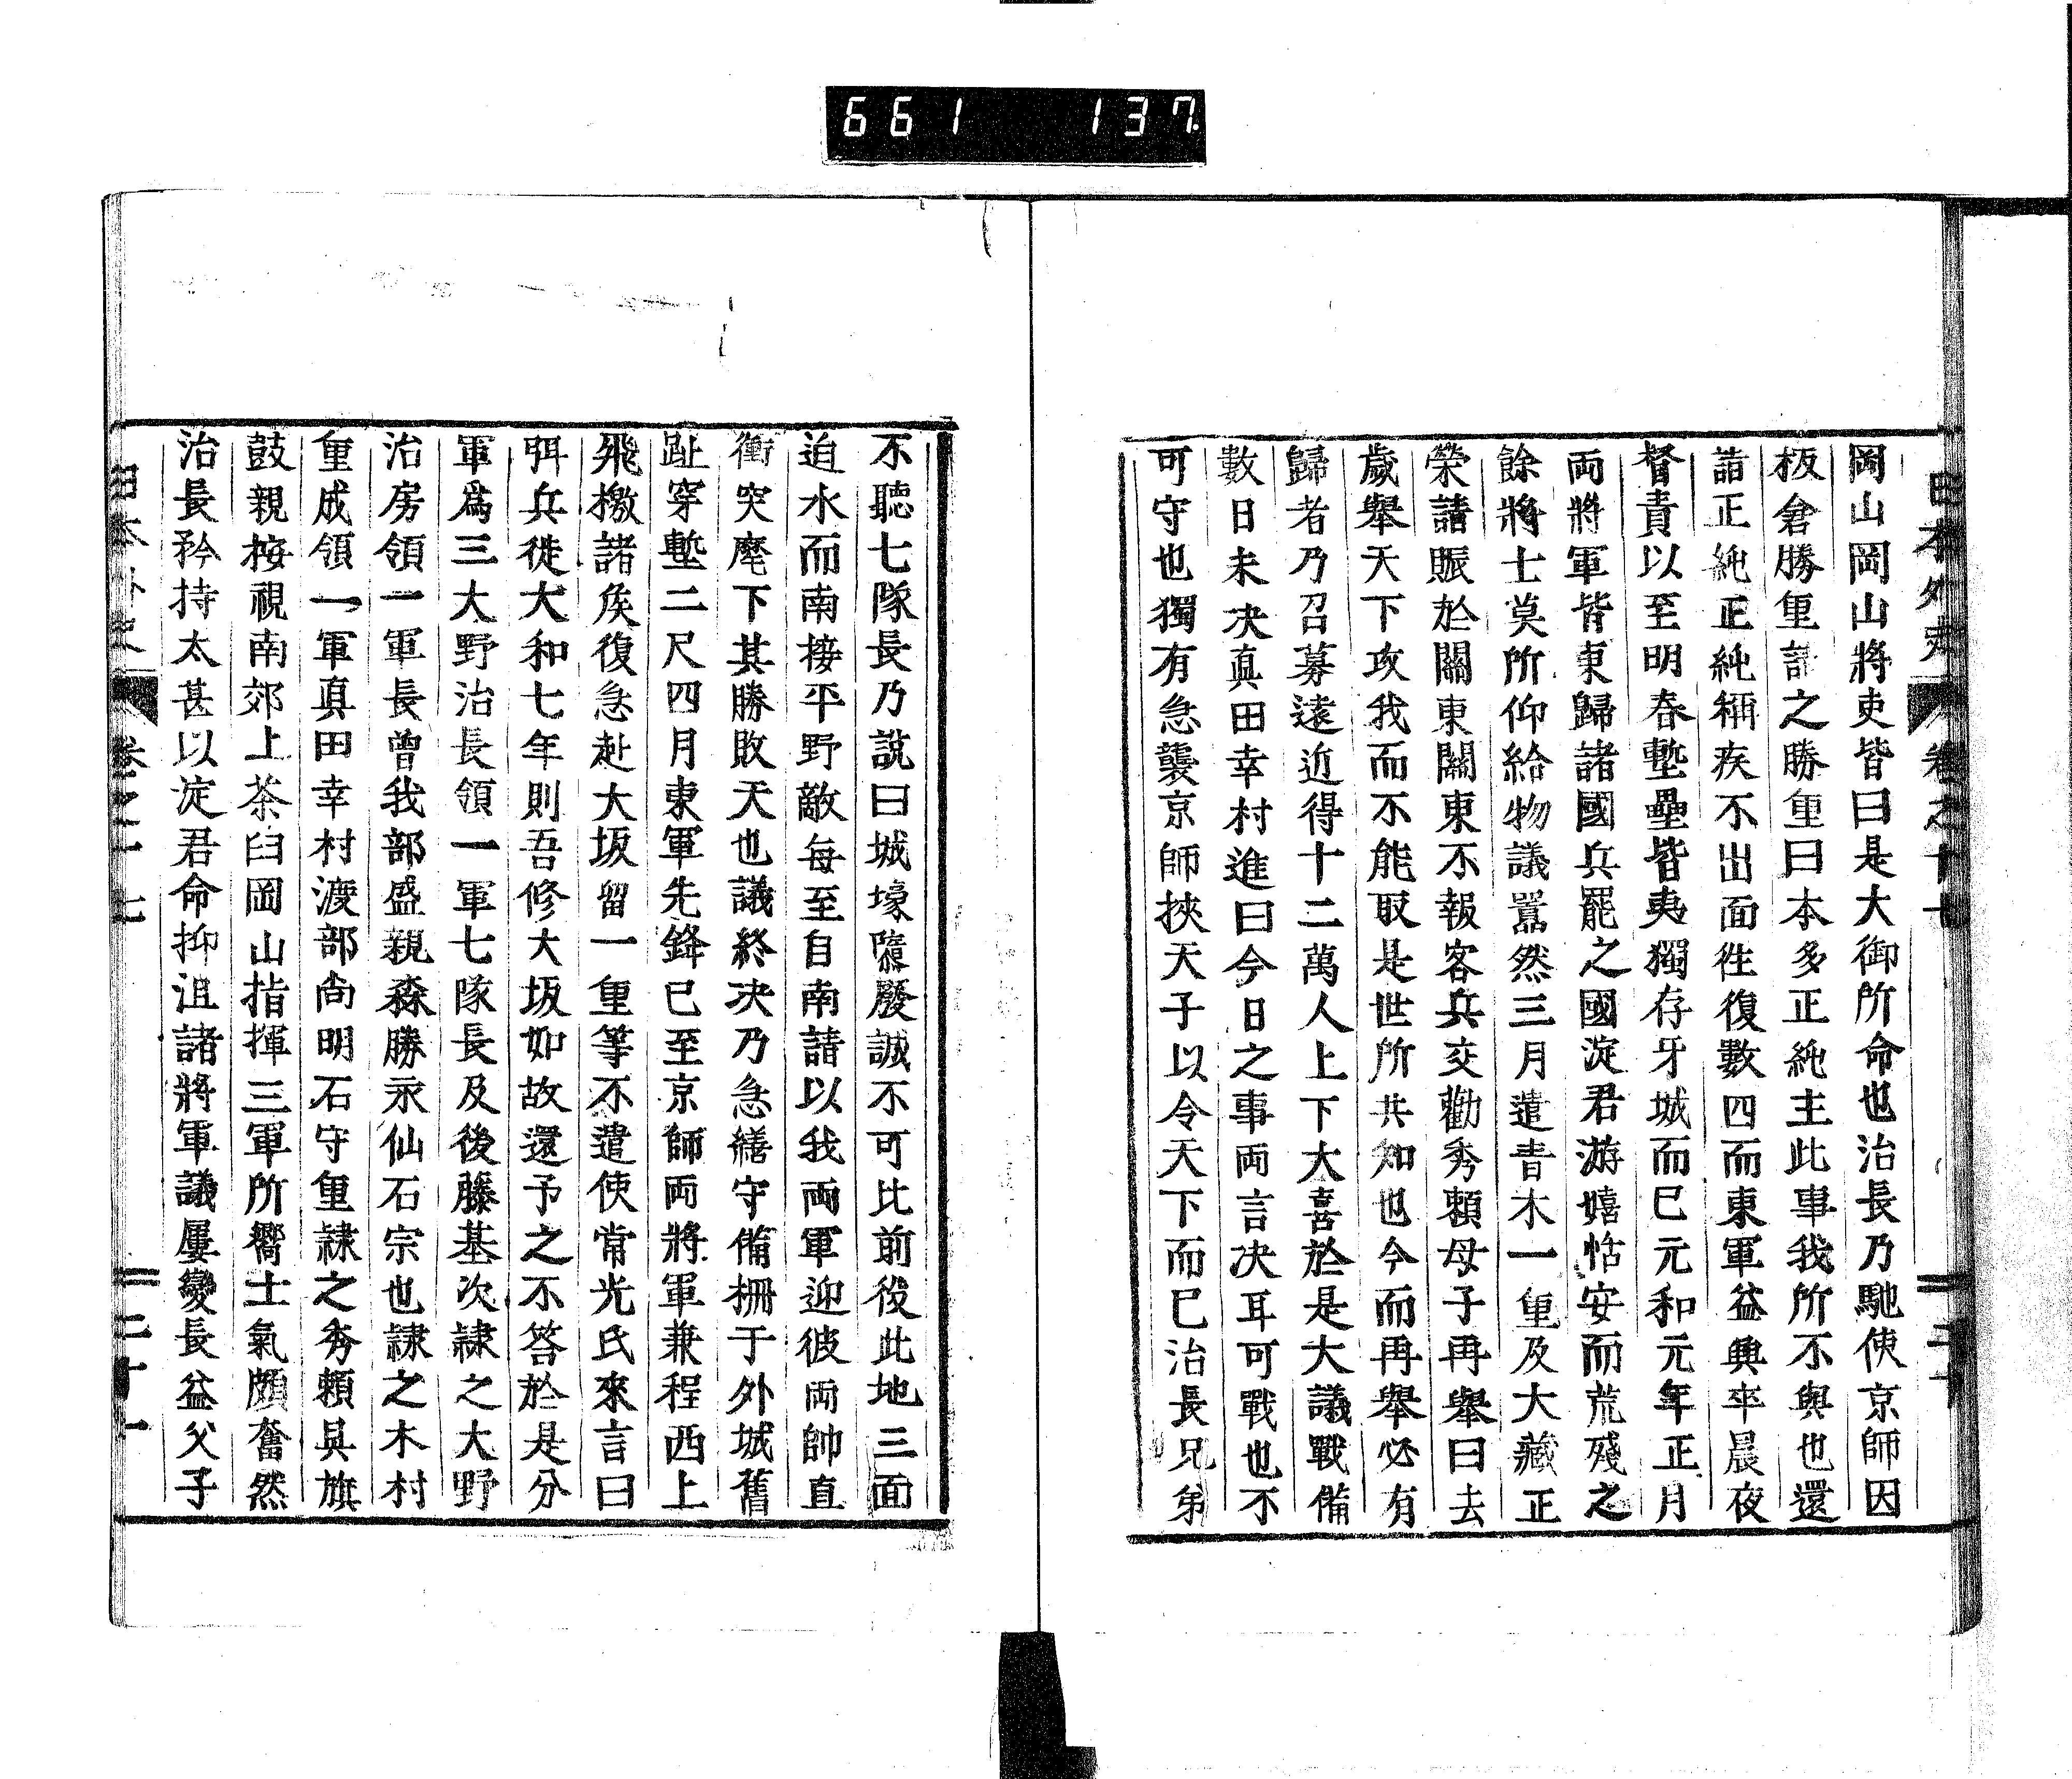 661 137
日本外史 卷之十七 二十
岡山岡山將吏皆曰是大御所命也治長乃馳使京師因
板倉勝重訴之勝重曰本多正純主此事我所不與也還
詰正純正純稱疾不出面徃復數四而東軍益興卒晨夜
督責以至明春塹壘皆夷獨存牙城而已元和元年正月
両將軍皆東歸諸國兵罷之國淀君游嬉恬安而荒殘之
餘將士莫所仰給物議囂然三月遣青木一重及大藏正
榮請賑於關東關東不報客兵交勸秀賴母子再舉曰去
歲舉天下攻我而不能取是世所共知也今而再舉必有
歸者乃召募遠近得十二萬人上下大喜於是大議戰備
數日未决真田幸村進曰今日之事両言决耳可戰也不
可守也獨有急襲京師挾天子以令天下而已治長兄弟
不聽七隊長乃說曰城壕隳廢誠不可比前役此地三面
迫水而南接平野敵每至自南請以我両軍迎彼両帥直
衝突麾下其勝敗天也議終决乃急繕守備柵于外城舊
趾穿塹二尺四月東軍先鋒已至京師両將軍兼程西上
飛檄諸矦復急赴大坂留一重等不遣使常光氏來言曰
弭兵徙大和七年則吾修大坂如故還予之不答於是分
軍爲三大野治長領一軍七隊長及後藤基次隷之大野
治房領一軍長曾我部盛親森勝永仙石宗也隷之木村
重成領一軍真田幸村渡部尚明石守重隷之秀賴具旗
鼓親按視南郊上茶臼岡山指揮三軍所嚮士氣頗奮然
治長矜持太甚以淀君命抑沮諸將軍議屢變長益父子
日本外史 卷之十七 二十一